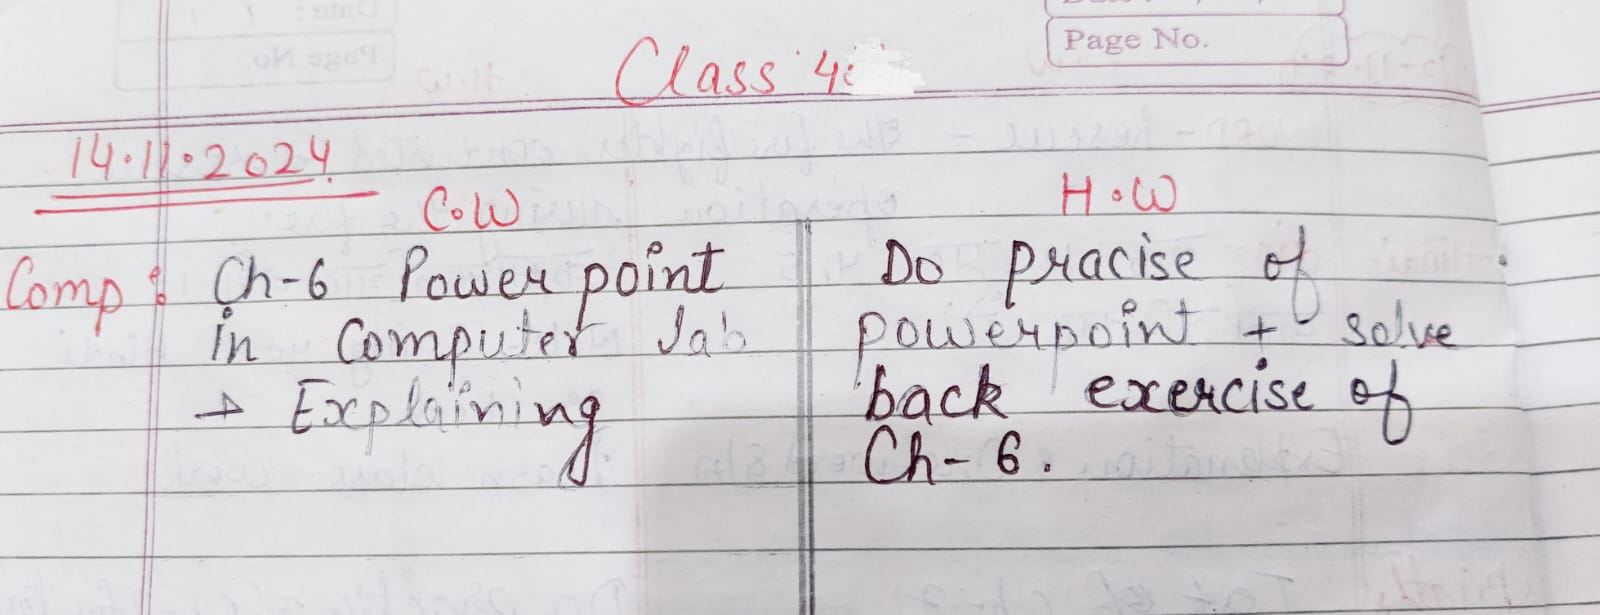 Page No.
Class 4:
14.11.2024
C.W
H.W
Comp : Ch-6 Powerpoint
in Computer lab
→ Explaining
Do pracise of
powerpoint + solve
back exercise of
Ch-6.